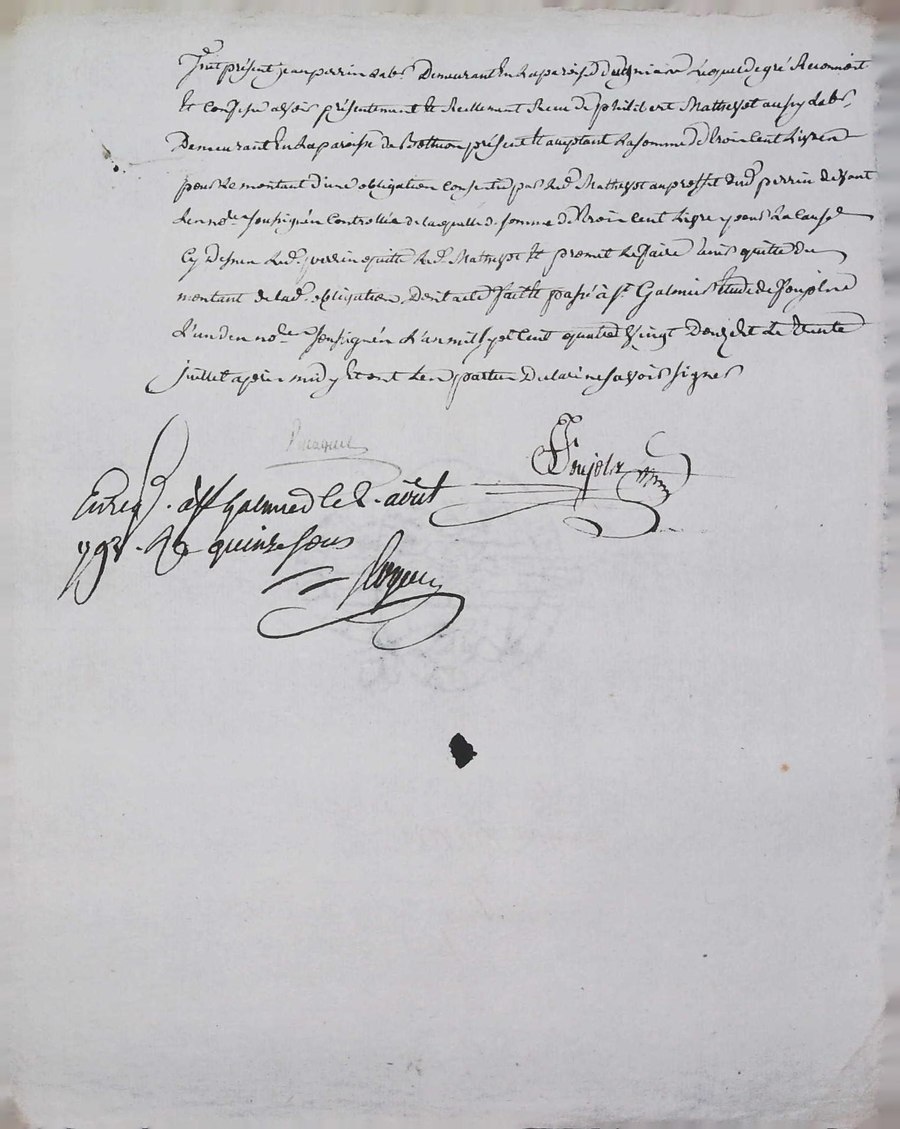 fut présent jean perrin lab.r Demeurant En la paroisse d'aveizieu Lequel de gré Reconnoit
Et confesse avoir présentement Et Réellement Receu de philibert Mattheyot aussy lab.r
Demeurant En la paroisse de Bothéon présent Et acceptant la somme de trois Cent Livres
pour Le montant d'une obligation consentie par Led. Matheyot au proffit dud. perrin devant
Les no.re soussignés Controllée de laquelle d. somme de trois cent Livre pour la cause
Cy dessus Led. perrin quitte Led. Matheyot Et promet Le faire tenir quitte du
montant de lad. obligation, dont acte fait Et passé à S.t Galmier Etude de Poujolx
L'un des no.re soussignés L'an mil sept Cent quatre Vingt Douze Et Le trente
juillet après midy Et ont Les parties Declaré ne savoir signer
Poujolx
Enreg. à St Galmier le 2 août
792. R. quinze sous